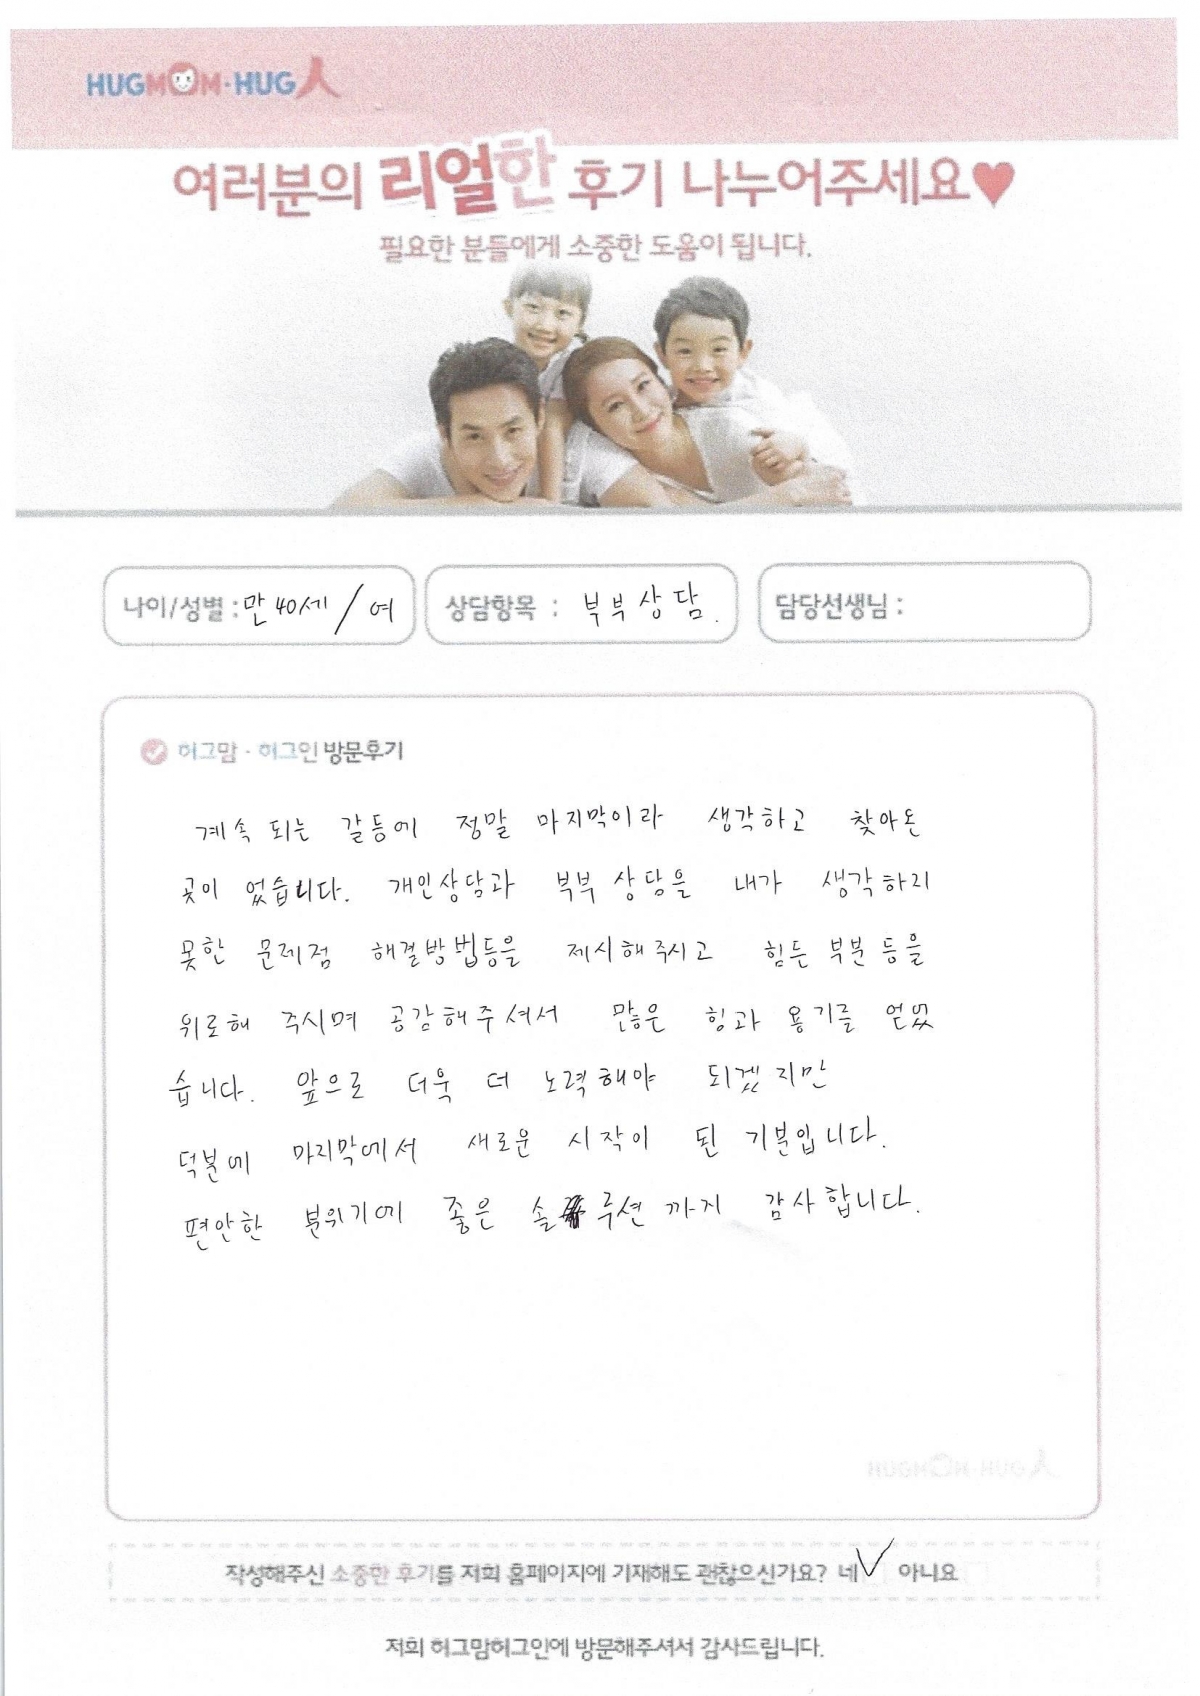 HUGMOM·HUG人
여러분의 리얼한 후기 나누어주세요♥
필요한 분들에게 소중한 도움이 됩니다.
나이/성별 : 만 40세 / 여 상담항목 : 부부상담. 담당선생님 :
허그맘 · 허그인 방문후기
계속 되는 갈등에 정말 마지막이라 생각하고 찾아온
곳이 었습니다. 개인상담과 부부 상담을 내가 생각하지
못한 문제점 해결방법등을 제시해주시고 힘든 부분 등을
위로해 주시며 공감해주셔서 많은 힘과 용기를 얻었
습니다. 앞으로 더욱 더 노력해야 되겠지만
덕분에 마지막에서 새로운 시작이 된 기분입니다.
편안한 분위기에 좋은 솔루션 까지 감사합니다.
작성해주신 소중한 후기를 저희 홈페이지에 기재해도 괜찮으신가요? 네 ✓ 아니요
저희 허그맘허그인에 방문해주셔서 감사드립니다.